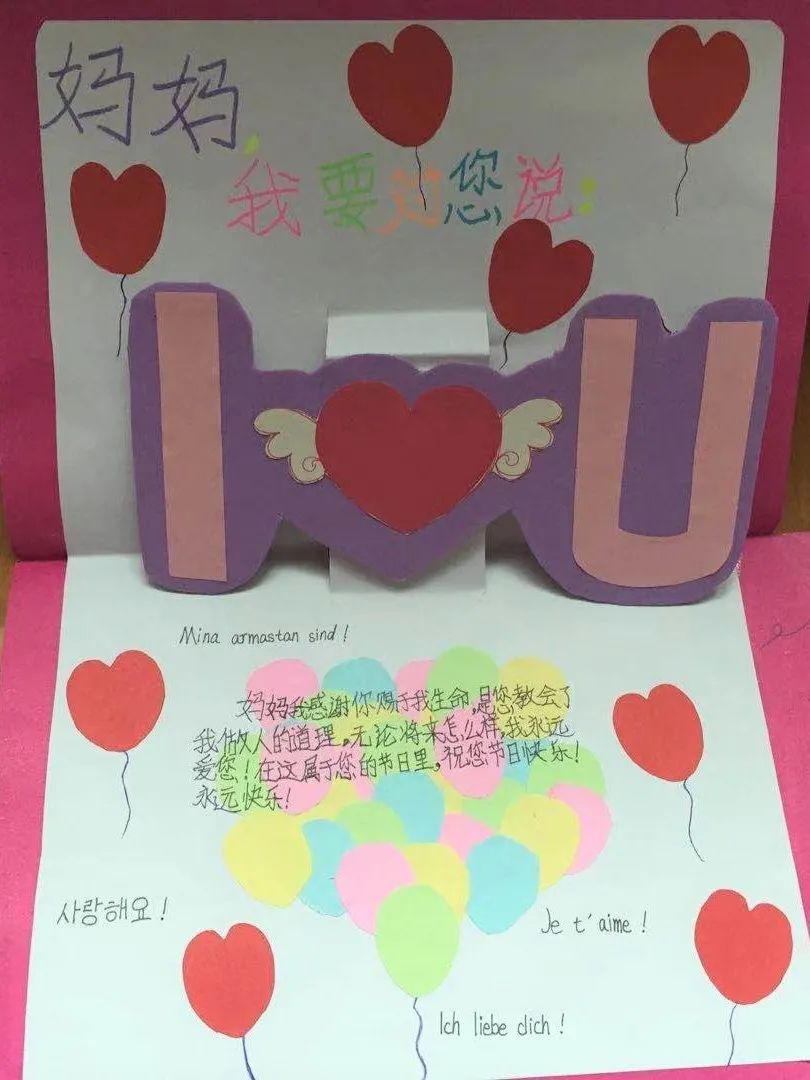 妈妈,
我要对您说:
I U
Mina armastan sind!
妈妈我感谢你赐于我生命,是您教会了
我做人的道理,无论将来怎么样,我永远
爱您!在这属于您的节日里,祝您节日快乐!
永远快乐!
사랑해요!
Je t'aime!
Ich liebe dich!